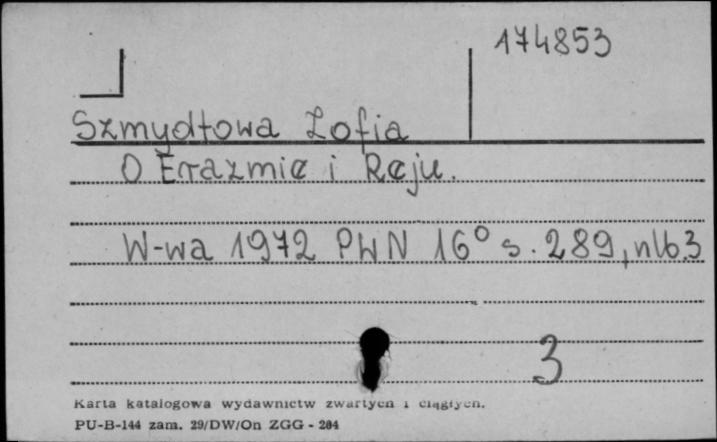 174853
Szmydtowa Zofia
O Erazmie i Reju.
W-wa 1972 PWN 16° s. 289, nlb.3
3
Karta katalogowa wydawnictw zwartych i ciągłych.
PU-B-144 zam. 29/DW/On ZGG - 284